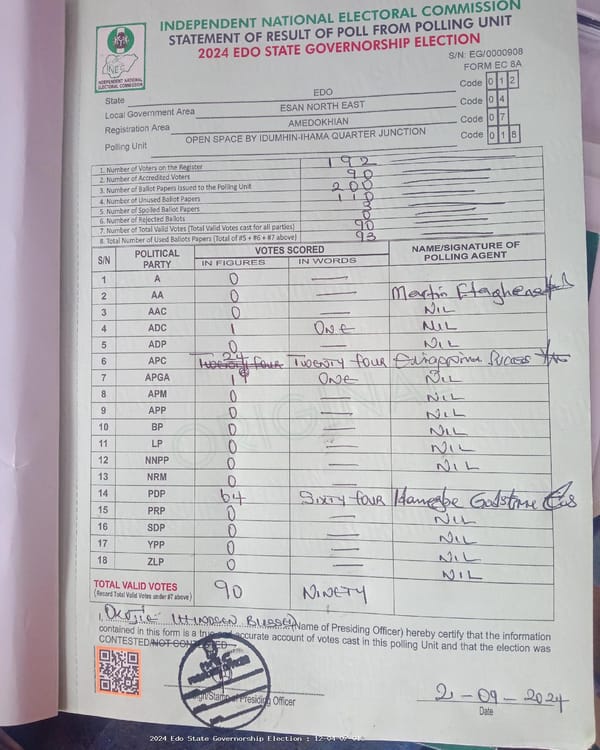 INDEPENDENT NATIONAL ELECTORAL COMMISSION
STATEMENT OF RESULT OF POLL FROM POLLING UNIT
2024 EDO STATE GOVERNORSHIP ELECTION
INEC
INDEPENDENT NATIONAL ELECTORAL COMMISSION
S/N: EG/0000908
FORM EC 8A
State EDO Code 0 1 2
Local Government Area ESAN NORTH EAST Code 0 4
Registration Area AMEDOKHIAN Code 0 7
Polling Unit OPEN SPACE BY IDUMHIN-IHAMA QUARTER JUNCTION Code 0 1 8
1. Number of Voters on the Register 192
2. Number of Accredited Voters 90
3. Number of Ballot Papers Issued to the Polling Unit 200
4. Number of Unused Ballot Papers 110
5. Number of Spoiled Ballot Papers 3
6. Number of Rejected Ballots 0
7. Number of Total Valid Votes (Total Valid Votes cast for all parties) 90
8. Total Number of Used Ballots Papers (Total of #5 + #6 + #7 above) 93
S/N POLITICAL PARTY VOTES SCORED NAME/SIGNATURE OF POLLING AGENT
IN FIGURES IN WORDS
1 A 0 —
2 AA 0 — Martin
3 AAC 0 — NIL
4 ADC 1 ONE NIL
5 ADP 0 — NIL
6 APC 24 TWENTY FOUR Success
7 APGA 1 ONE NIL
8 APM 0 — NIL
9 APP 0 — NIL
10 BP 0 — NIL
11 LP 0 — NIL
12 NNPP 0 — NIL
13 NRM 0 —
14 PDP 64 SIXTY FOUR Godstime
15 PRP 0 — NIL
16 SDP 0 — NIL
17 YPP 0 — NIL
18 ZLP 0 — NIL
ORIGINAL
TOTAL VALID VOTES 90 NINETY
(Record Total Valid Votes under #7 above)
I, (Name of Presiding Officer) hereby certify that the information
contained in this form is a true and accurate account of votes cast in this polling Unit and that the election was
CONTESTED/NOT CONTESTED
Sign/Stamp of Presiding Officer
2-09-2024
Date
2024 Edo State Governorship Election :